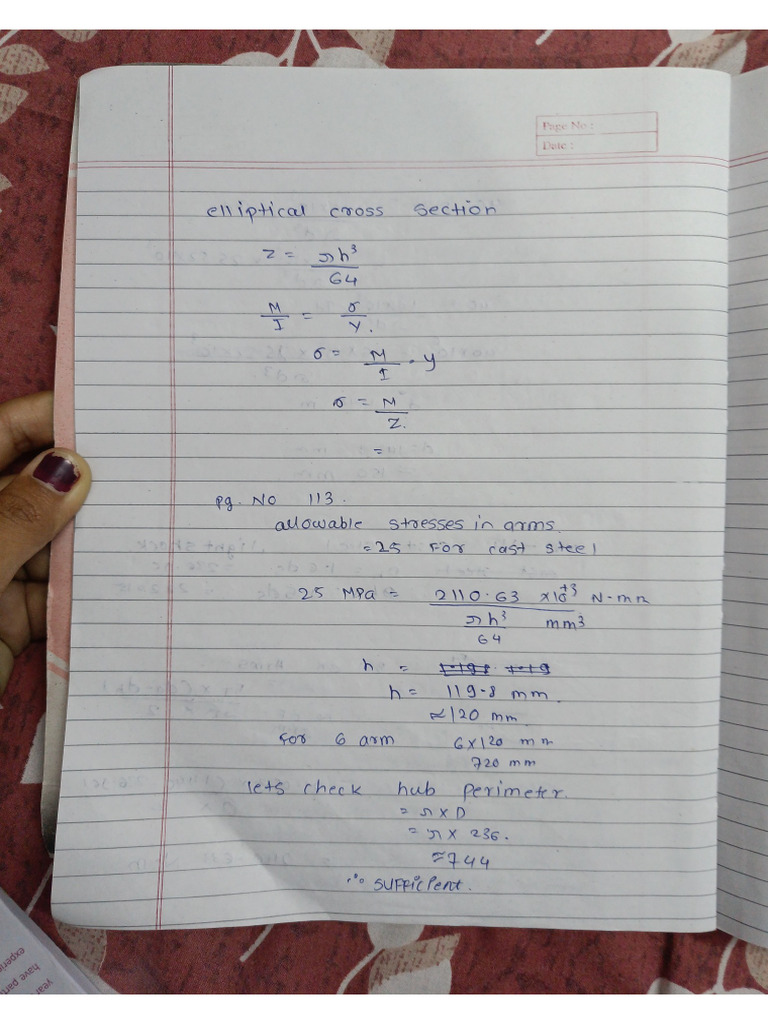 Page No :
Date :
elliptical cross section
Z = πh³/64
M/I = σ/Y.
σ = M/I . y
σ = M/Z.
=
pg. No 113.
allowable stresses in arms.
= 25 for cast steel
25 MPa = 2110.63 x10⁺³ N-mm / πh³/64 mm³
h =
h = 119.8 mm.
≈ 120 mm.
for 6 arm 6x120 mm
720 mm
lets check hub perimeter.
= π x D
= π x 236.
= 744
∴ sufficient.